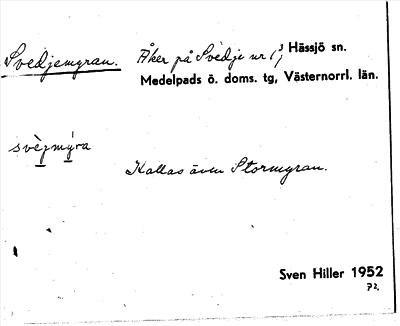 Svedjemyran. Åker på Svedje nr 1, 3 Hässjö sn.
Medelpads ö. doms. tg, Västernorrl. län.
svèjmýra
Kallas även Stormyran.
Sven Hiller 1952